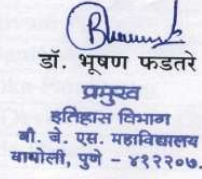 डॉ. भूषण फडतरे
प्रमुख
इतिहास विभाग
बी. जे. एस. महाविद्यालय
वाघोली, पुणे - ४१२२०७.